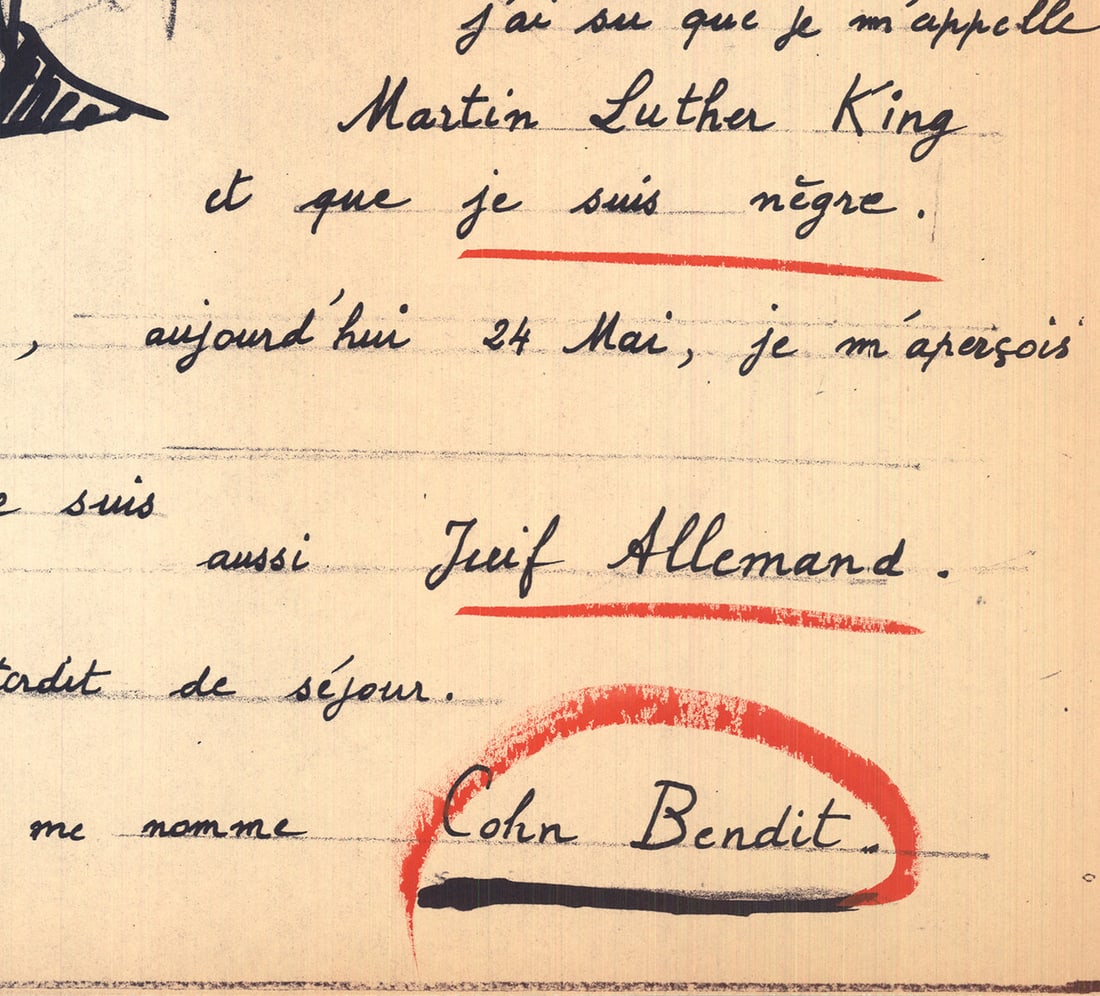 j'ai su que je m'appelle
Martin Luther King
et que je suis nègre.
, aujourd'hui 24 Mai, je m'aperçois
suis
aussi Juif Allemand.
de séjour.
me nomme Cohn Bendit